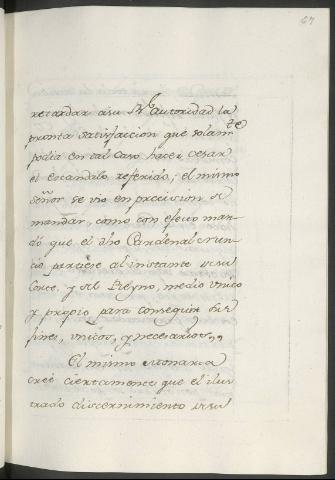 67
retardar a su Rl. autoridad la
pronta satisfaccion que solamte
podia en tal caso hacer cesar
el escandalo referido; el mismo
Señor se vio en precision de
mandar, como con efecto man-
dó que el dho Cardenal Nun-
cio partiese al instante de su
Corte, y del Reyno, medio unico
y propio para conseguir sus
fines, unicos, y necesarios,,
El mismo Monarca
creé ciertamente que el ilus-
trado discernimiento de su